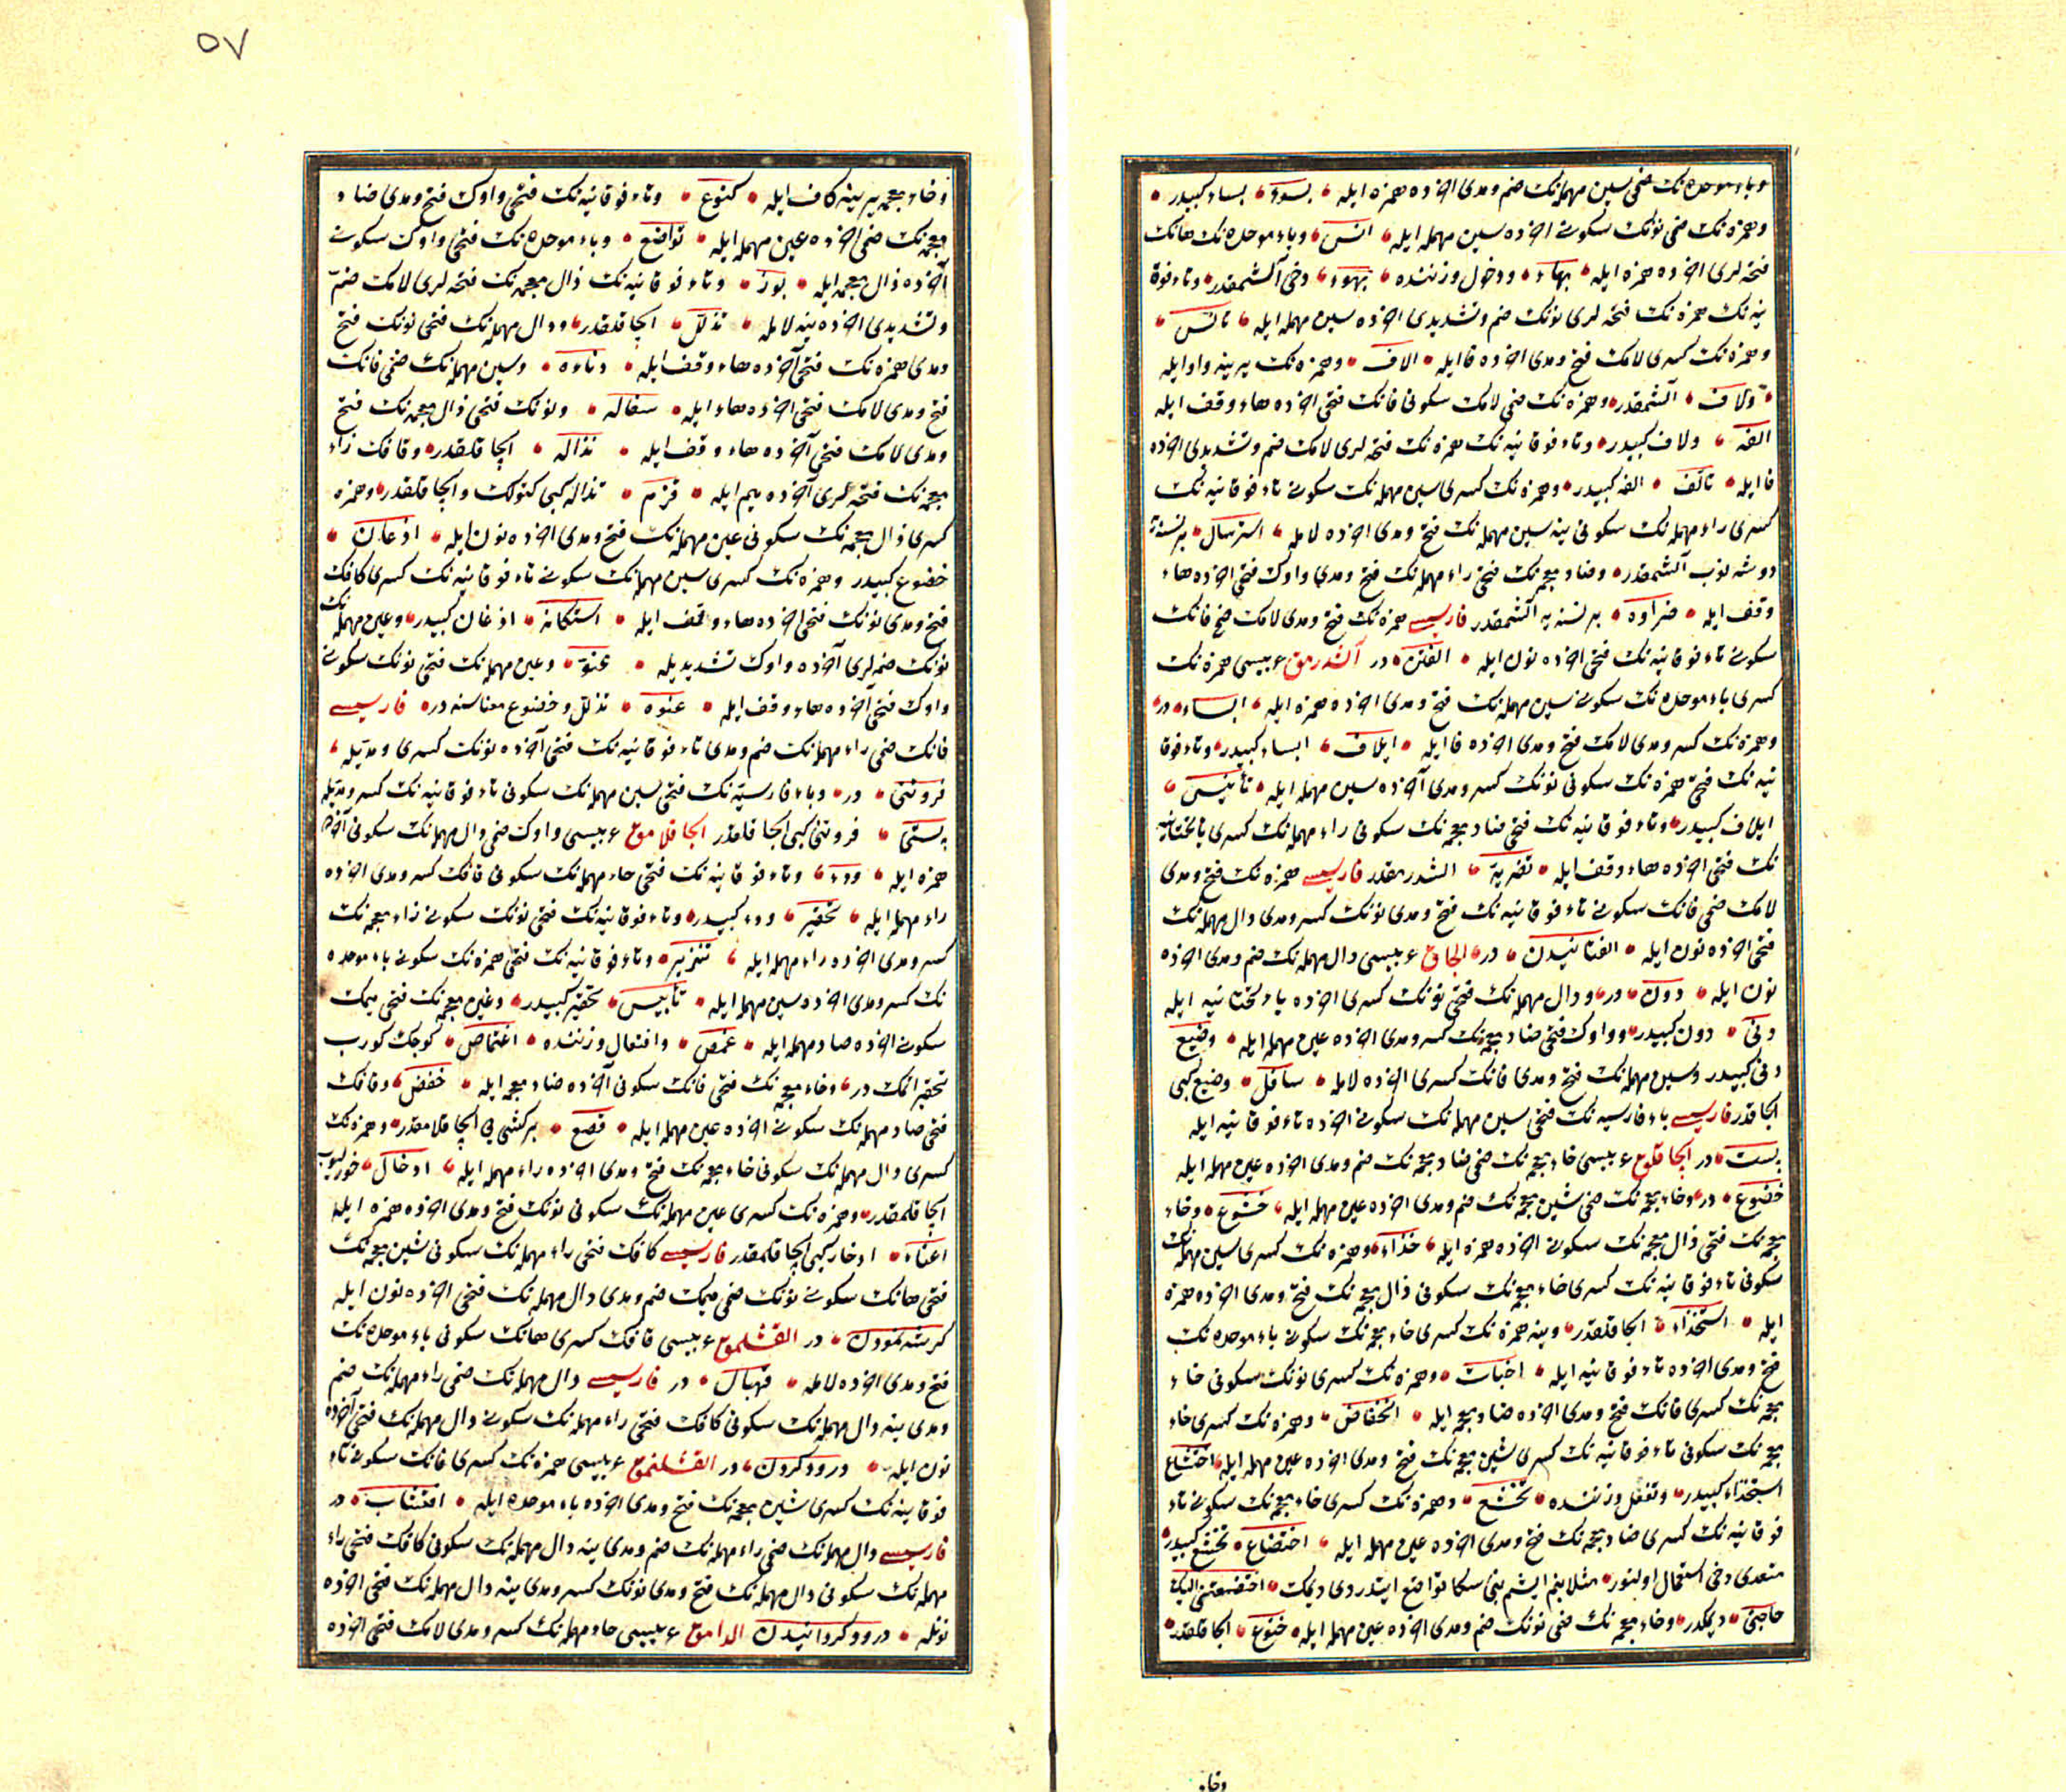 وباء موحده‌نك ضمی سین مهمله‌نك ضم ومدی اخرده همزه ایله • بسوء • بساء كبیدر •
وهمزه‌نك ضمی نونك سكونی اخرده سین مهمله ایله • انس • وباء موحده‌نك هانك
فتحه‌لری اخرده همزه ایله • بهاء • ودخول وزننده • بهوء • دخی آلشمقدر • وتاء فوقا
نیه‌نك همزه‌نك فتحه‌لری نونك ضم وتشدیدی اخرده سین مهمله ایله • تأنس •
وهمزه‌نك كسری لامك فتح ومدی اخرده فا ایله • الاف • وهمزه‌نك یرینه واو ایله
• ولاف • آلشمقدر • وهمزه‌نك ضمی لامك سكونی فانك فتحی اخرده هاء وقف ایله
الفه • ولاف كبیدر • وتاء فوقانیه‌نك همزه‌نك فتحه‌لری لامك ضم وتشدیدی اخرده
فا ایله • تألف • الفه كبیدر • وهمزه‌نك كسری سین مهمله‌نك سكونی تاء فوقانیه‌نك
كسری راء مهمله‌نك سكونی ینه سین مهمله‌نك فتح ومدی اخرده لامله • استرسال •
دوشنوب آلشمقدر • وضاد معجمه‌نك فتحی راء مهمله‌نك فتح ومدی واوك فتحی اخرده هاء
وقف ایله • ضراوه • بر نسنه‌یه آلشمقدر فارسیسی همزه‌نك فتح ومدی لامك ضمی فانك
سكونی تاء فوقانیه‌نك فتحی اخرده نون ایله • الفتن • در آلشدرمق عربیسی همزه‌نك
كسری باء موحده‌نك سكونی سین مهمله‌نك فتح ومدی اخرده همزه ایله • ابساء • در •
وهمزه‌نك كسر ومدی لامك فتح ومدی اخرده فا ایله • ایلاف • ابساء كبیدر • وتاء فوقا
نیه‌نك فتحی همزه‌نك سكونی نونك كسر ومدی آخرده سین مهمله ایله • تأنیس •
ایلاف كبیدر • وتاء فوقانیه‌نك فتحی ضاد معجمه‌نك سكونی راء مهمله‌نك كسری یاء تحتانیه
نك فتحی اخرده هاء وقف ایله • تضریة • الشدرمقدر فارسیسی همزه‌نك فتح ومدی
لامك ضمی فانك سكونی تاء فوقانیه‌نك فتح ومدی نونك كسر ومدی دال مهمله‌نك
فتحی اخرده نون ایله • الفتانیدن • در • الچاق عربیسی دال مهمله‌نك ضم ومدی اخرده
نون ایله • دون • در • ودال مهمله‌نك فتحی نونك كسری اخرده یاء تحتانیه ایله
دنی • دون كبیدر • وواوك فتحی ضاد معجمه‌نك كسر ومدی اخرده عین مهمله ایله • وضیع
دنی كبیدر وسین مهمله‌نك فتح ومدی فانك كسری اخرده لامله • سافل • وضیع كبی
الچاقدر فارسیسی باء فارسیه‌نك فتحی سین مهمله‌نك سكونی اخرده تاء فوقانیه ایله
پست • در الچاقلق عربیسی خاء معجمه‌نك ضمی ضاد معجمه‌نك ضم ومدی اخرده عین مهمله ایله
خضوع • در • وخاء معجمه‌نك ضمی شین معجمه‌نك ضم ومدی اخرده عین مهمله ایله • خشوع • وخاء
معجمه‌نك فتحی ذال معجمه‌نك سكونی اخرده همزه ایله • خذاء • وهمزه‌نك كسری سین مهمله‌نك
سكونی تاء فوقانیه‌نك كسری خاء معجمه‌نك سكونی ذال معجمه‌نك فتح ومدی اخرده همزه
ایله • استخذاء • الچاقلقدر • وینه همزه‌نك كسری خاء معجمه‌نك سكونی باء موحده‌نك
فتح ومدی اخرده تاء فوقانیه ایله • اخبات • وهمزه‌نك كسری نونك سكونی خاء
معجمه‌نك كسری فانك فتح ومدی اخرده ضاد معجمه ایله • انخفاض • وهمزه‌نك كسری خاء
معجمه‌نك سكونی تاء فوقانیه‌نك كسری شین معجمه‌نك فتح ومدی اخرده عین مهمله ایله • اختشاع
استخذاء كبیدر • وتفعل وزننده • تخشع • وهمزه‌نك كسری خاء معجمه‌نك سكونی تاء
فوقانیه‌نك كسری ضاد معجمه‌نك فتح ومدی اخرده عین مهمله ایله • اختضاع • تخشع كبیدر •
متعدی دخی استعمال اولنور • مثلا بنم ایشم بنی سكا تواضع ایتدردی دیمك • اختضعتنی الیك
حاجتی • دیمكدر • وخاء معجمه‌نك ضمی نونك ضم ومدی اخرده عین مهمله ایله • خنوع • الچاقلقدر •
وخاء
٥٧
وخاء معجمه یرینه كاف ایله • كنوع • وتاء فوقانیه‌نك فتحی واوك فتح ومدی ضاد
معجمه‌نك ضمی اخرده عین مهمله ایله • تواضع • وباء موحده‌نك فتحی واوك سكونی
آخرده ذال معجمه ایله • بوذ • وتاء فوقانیه‌نك ذال معجمه‌نك فتحه‌لری لامك ضم
وتشدیدی اخرده ینه لامله • تذلل • الچاقلقدر • ودال مهمله‌نك فتحی نونك فتح
ومدی همزه‌نك فتحی آخرده هاء وقف ایله • دناءه • وسین مهمله‌نك ضمی فانك
فتح ومدی لامك فتحی اخرده هاء ایله • سفاله • ونونك فتحی ذال معجمه‌نك فتح
ومدی لامك فتحی آخرده هاء وقف ایله • نذاله • الچاقلقدر • وقافك زاء
معجمه‌نك فتحه‌لری آخرده میم ایله • قزم • نذاله كبی كتولك والچاقلقدر • وهمزه
كسری ذال معجمه‌نك سكونی عین مهمله‌نك فتح ومدی اخرده نون ایله • اذعان •
خضوع كبیدر وهمزه‌نك كسری سین مهمله‌نك سكونی تاء فوقانیه‌نك كسری كافك
فتح ومدی نونك فتحی اخرده هاء وقف ایله • استكانة • اذعان كبیدر • وعین مهمله‌نك
نونك ضمه‌لری آخرده واوك تشدیدیله • عنوّ • وعین مهمله‌نك فتحی نونك سكونی
واوك فتحی آخرده هاء وقف ایله • عنوه • تذلل وخضوع معناسنه در • فارسیسی
فانك ضمی راء مهمله‌نك ضم ومدی تاء فوقانیه‌نك فتحی آخرده نونك كسری ومدیله •
فروتنی • در • وباء فارسیه‌نك فتحی سین مهمله‌نك سكونی تاء فوقانیه‌نك كسر ومدیله
پستی • فروتنی كبی الچاقلقدر الچاقلامق عربیسی واوك فتحی دال مهمله‌نك سكونی آخرده
همزه ایله • ودء • وتاء فوقانیه‌نك فتحی حاء مهمله‌نك سكونی قافك كسر ومدی اخرده
راء مهمله ایله • تحقیر • ودء كبیدر • وتاء فوقانیه‌نك فتحی نونك سكونی زاء معجمه‌نك
كسر ومدی اخرده راء مهمله ایله • تنزیر • وتاء فوقانیه‌نك فتحی همزه‌نك سكونی باء موحده
نك كسر ومدی اخرده سین مهمله ایله • تأبیس • تحقیر كبیدر • وغین معجمه‌نك فتحی میمك
سكونی اخرده صاد مهمله ایله • غمص • وافتعال وزننده • اغتماص • كوچك كورب
تحقیر اتمك در • وخاء معجمه‌نك فتحی فانك سكونی آخرده ضاد معجمه ایله • خفض • وقافك
فتحی صاد مهمله‌نك سكونی اخرده عین مهمله ایله • قصع • بر كشی یی الچاقلامقدر • وهمزه‌نك
كسری دال مهمله‌نك سكونی خاء معجمه‌نك فتح ومدی اخرده راء مهمله ایله • ادخار • خورلیوب
الچاقلمقدر • وهمزه‌نك كسری عین مهمله‌نك سكونی نونك فتح ومدی اخرده همزه ایله
اعناء • ادخار كبی الچاقلمقدر فارسیسی كافك فتحی راء مهمله‌نك سكونی شین معجمه‌نك
فتحی هانك سكونی نونك ضمی میمك ضم ومدی دال مهمله‌نك فتحی اخرده نون ایله
كرشه نمودن • در القشلمق عربیسی قافك كسری هانك سكونی باء موحده‌نك
فتح ومدی اخرده لامله • قهبال • در فارسیسی دال مهمله‌نك ضمی راء مهمله‌نك ضم
ومدی ینه دال مهمله‌نك سكونی كافك فتحی راء مهمله‌نك سكونی دال مهمله‌نك فتحی آخرده
نون ایله • درود كردن • در القشلنمق عربیسی همزه‌نك كسری قافك سكونی تاء
فوقانیه‌نك كسری شین معجمه‌نك فتح ومدی اخرده باء موحده ایله • اقتشاب • در
فارسیسی دال مهمله‌نك ضمی راء مهمله‌نك ضم ومدی ینه دال مهمله‌نك سكونی كافك فتحی راء
مهمله‌نك سكونی دال مهمله‌نك فتح ومدی نونك كسر ومدی ینه دال مهمله‌نك فتحی اخرده
نونله • درود كردانیدن الدامق عربیسی حاء مهمله‌نك كسر ومدی لامك فتحی اخرده